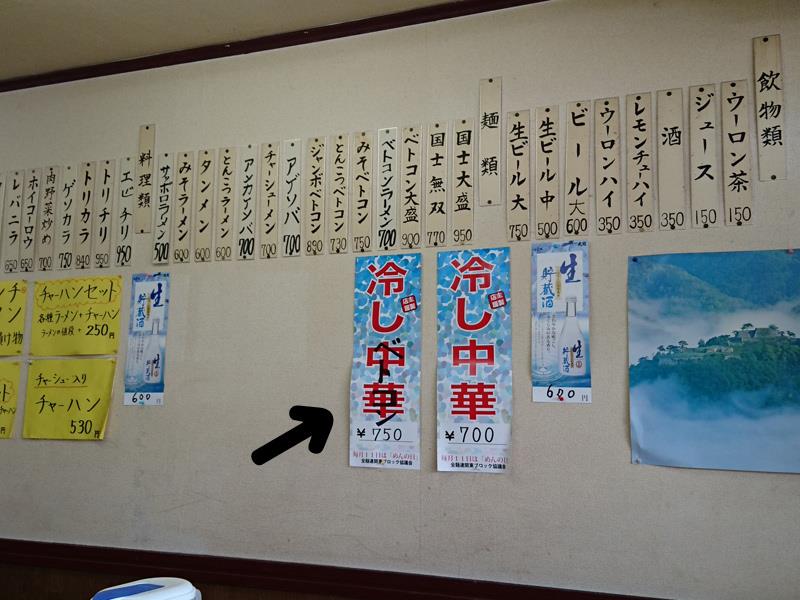 飲物類
ウーロン茶 150
ジュース 150
酒 350
レモンチューハイ 350
ウーロンハイ 350
ビール大 600
生ビール中 500
生ビール大 750
麺類
国士大盛 950
国士無双 770
ベトコン大盛 900
ベトコンラーメン 700
みそベトコン 750
とんこつベトコン 730
ジャンボベトコン 890
アゲソバ 700
チャーシューメン 700
アンカケソバ 700
とんこつラーメン 600
タンメン 600
みそラーメン 600
サッポロラーメン 500
料理類
エビチリ 950
トリチリ 950
トリカラ 840
ゲソカラ 750
肉野菜炒め 700
ホイコーロウ 650
レバニラ 650
生
貯蔵酒
生
貯蔵酒
600円
冷し中華
店主
謹製
¥700
毎月11日は「めんの日」
全麺連関東ブロック協議会
冷し中華
ベトコン
店主
謹製
¥750
毎月11日は「めんの日」
全麺連関東ブロック協議会
生
貯蔵酒
生
貯蔵酒
600円
チャーハンセット
各種ラーメン+チャーハン
ラーメンの値段+250円
チャーシュー入り
チャーハン
530円